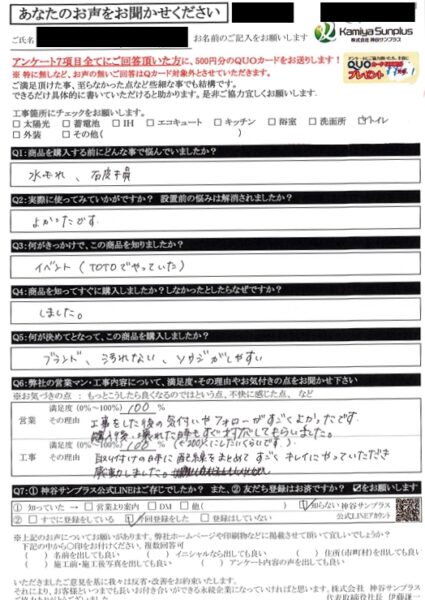 あなたのお声をお聞かせください
Kamiya Sunplus
株式会社 神谷サンプラス
ご氏名
お名前のご記入をお願いします
アンケート7項目全てにご回答頂いた方に、500円分のQUOカードをお送りします!
※ 特に無しなど、お声の無いご回答はQカード対象外とさせていただきます。
QUO
プレゼント
ご満足頂けた事、至らなかった点など些細な事でも結構です。
できるだけ具体的に書いていただけると助かります。是非ご協力宜しくお願いします。
工事箇所にチェックをお願いします。
□ 太陽光 □ 蓄電池 □ IH □ エコキュート □ キッチン □ 浴室 □ 洗面所 ☑トイレ
□ 外装 □ その他( )
Q1:商品を購入する前にどんな事で悩んでいましたか?
水もれ、
Q2:実際に使ってみていかがですか? 設置前の悩みは解消されましたか?
よかったです
Q3:何がきっかけで、この商品を知りましたか?
イベント(TOTOでやっていた)
Q4:商品を知ってすぐに購入しましたか?しなかったとしたらなぜですか?
しました。
Q5:何が決めてとなって、この商品を購入しましたか?
ブランド、汚れない、ソウジがしやすい
Q6:弊社の営業マン・工事内容について、満足度・その理由やお気付きの点をお聞かせ下さい
※お気づきの点 : もっとこうしたら良くなるのではという点、不快に感じた点、など
満足度(0%~100%) 100 %
営業 その理由 工事をした後の気付いやフォローがすごくよかったです。
購入後、壊れた時もすぐ対応してもらいました。
満足度(0%~100%) 100 % (+200%にしたいくらいです。)
工事 その理由 取り付けの時に配線をまとめて すごく キレイにやっていただき
感動しました。
Q7:① 神谷サンプラス公式LINEはご存じでしたか? また、② 友だち登録はお済ですか? ☑をお願いします
① □ 知っていた → □ 営業より案内 □ DM □ 他( ) ☑知らない
② □ すでに登録をしている ☑今回登録をした □ 登録はしていない
神谷サンプラス
公式LINEアカウント
※上記のお声についてお願いがあります。弊社ホームページや印刷物などに掲載させて頂いて宜しいでしょうか?
下記の中から○印をお付けください、複数回答可
( ) 名前を出しても良い ( ) イニシャルなら出しても良い ( ) 住所(市町村)を出しても良い
( ) 施工前・施工後写真を出しても良い ( ) アンケート内容の声を出しても良い
いただきましたご意見を基に我々は反省・改善をお約束いたします。
それにより、お客様といつまでも長いお付き合いができる永続企業になっていければと思います。株式会社 神谷サンプラス
代表取締役社長 伊藤謙一